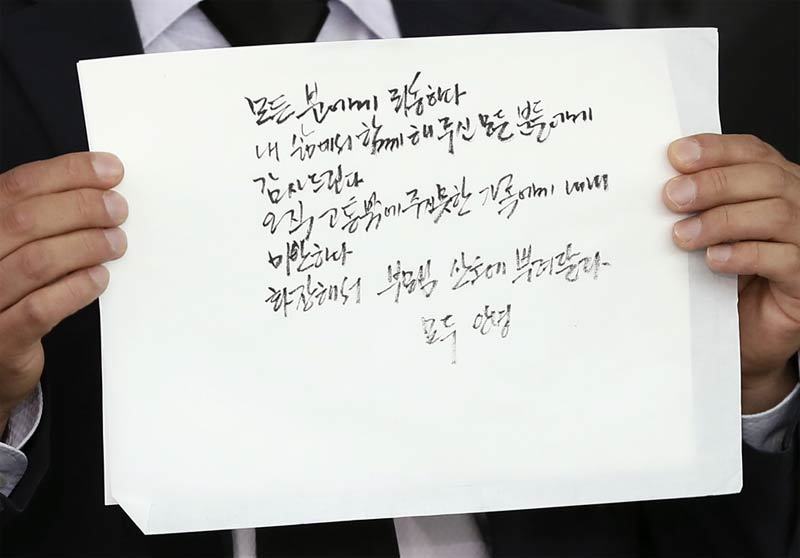 모든 분에게 죄송하다
내 삶에서 함께 해 주신 모든 분들에게
감사드린다
오직 고통밖에 주지못한 가족에게 내내
미안하다
화장해서 부모님 산소에 뿌려달라.
모두 안녕